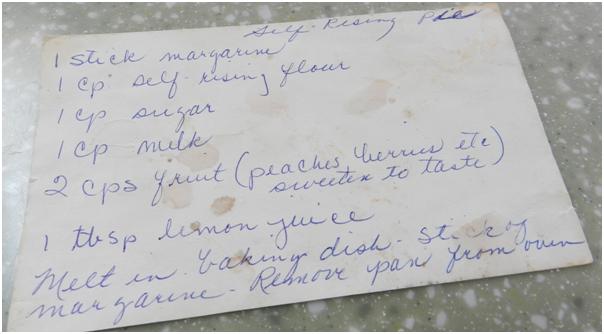 Self-Rising Pie
1 stick margarine
1 cp self-rising flour
1 cp sugar
1 cp milk
2 cps fruit (peaches, berries etc)
sweeten to taste
1 tbsp lemon juice
Melt in baking dish - stick of
margarine - Remove pan from oven